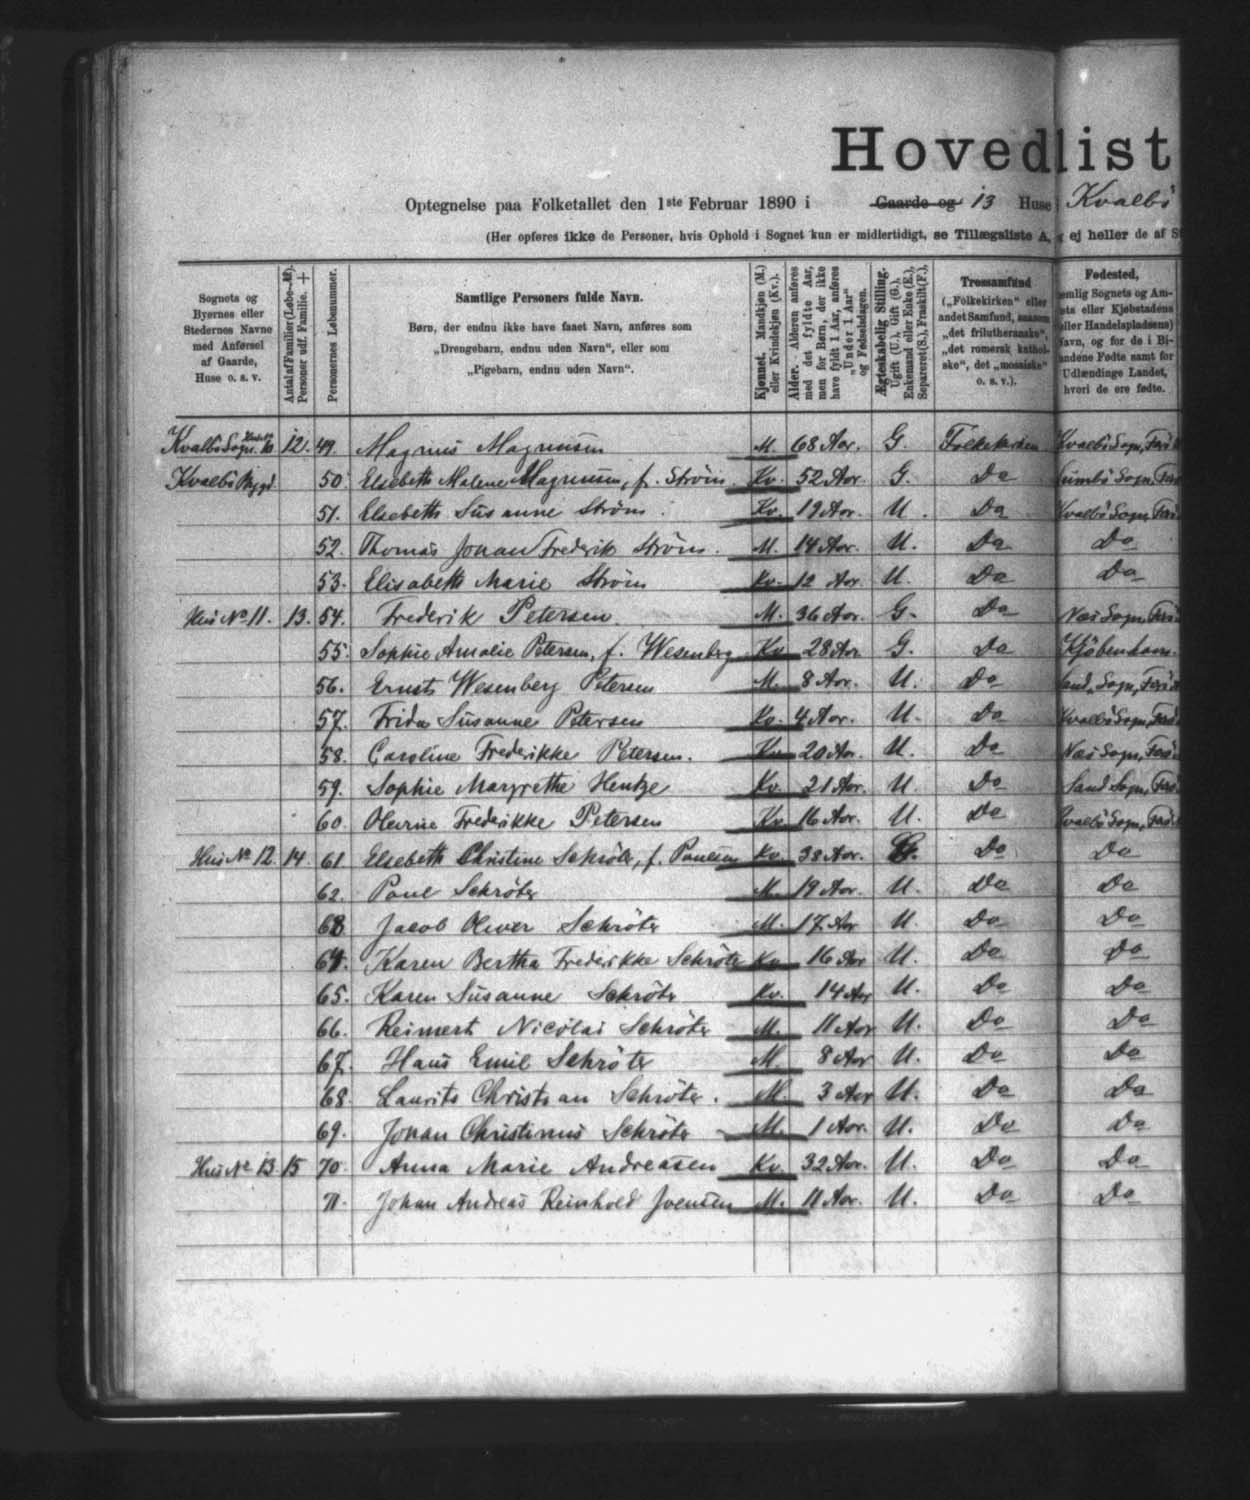 Hovedlist
Optegnelse paa Folketallet den 1ste Februar 1890 i Gaarde og 13 Huse Kvalbö
(Her opføres ikke de Personer, hvis Ophold i Sognet kun er midlertidigt, se Tillægsliste A, ej heller de af
Sognets og Byernes eller Stedernes Navne med Anførsel af Gaarde, Huse o. s. v.
Antal af Familier (Løbe-№). Personer udf. Familie. +
Personernes Løbenummer.
Samtlige Personers fulde Navn.
Børn, der endnu ikke have faaet Navn, anføres som
„Drengebarn, endnu uden Navn“, eller som
„Pigebarn, endnu uden Navn“.
Kjønnet. Mandkjøn (M.) eller Kvindekjøn (Kv.).
Alder. Alderen anføres med det fyldte Aar, men for Børn, der ikke have fyldt 1 Aar, anføres „Under 1 Aar“ og Fødselsdagen.
Ægteskabelig Stilling. Ugift (U.), Gift (G.), Enkemand eller Enke (E.), Separeret (S.), Fraskilt (F.).
Trossamfund
(„Folkekirken“ eller andet Samfund, saasom „det frilutheranske“, „det romersk kathol-ske“, det „mosaiske“ o. s. v.).
Fødested,
emlig Sognets og Am-
ets eller Kjøbstadens
eller Handelspladsens)
Navn, og for de i Bi-
andene Fødte samt for
Udlændinge Landet,
hvori de ere fødte.
Kvalbö Sogn. 10 12. 49. Magnus Magnussen M. 68 Aar. G. Folkekirken Kvalbö Sogn,
Kvalbö Bygd 50. Elsebeth Malene Magnussen, f. Ström Kv. 52 Aar. G. Do Sumbö Sogn,
51. Elsebeth Susanne Ström. Kv. 19 Aar. U. Do Kvalbö Sogn,
52. Thomas Johan Frederik Ström. M. 14 Aar. U. Do Do
53. Elisabeth Marie Ström Kv. 12 Aar U. Do Do
Hus No 11. 13. 54. Frederik Petersen. M. 36 Aar. G. Do Næs Sogn,
55. Sophie Amalie Petersen, f. Wesenberg Kv. 28 Aar G. Do Kjöbenhavn.
56. Ernst Wesenberg Petersen M. 8 Aar. U. Do Sand Sogn,
57. Frida Susanne Petersen Kv. 4 Aar. U. Do Kvalbö Sogn,
58. Caroline Frederikke Petersen. Kv. 20 Aar. U. Do Næs Sogn,
59. Sophie Margrethe Hentze Kv. 21 Aar. U. Do Sand Sogn,
60. Olevine Frederikke Petersen Kv. 16 Aar. U. Do Kvalbö Sogn,
Hus No 12. 14. 61. Elsebeth Christine Schröter, f. Poulsen Kv. 38 Aar. G. Do Do
62. Poul Schröter M. 19 Aar. U. Do Do
63 Jacob Oliver Schröter M. 17 Aar U. Do Do
64. Karen Bertha Frederikke Schröter Kv. 16 Aar U. Do Do
65. Karen Susanne Schröter Kv. 14 Aar U. Do Do
66. Reimert Nicolai Schröter M. 11 Aar U. Do Do
67. Hans Emil Schröter M. 8 Aar U. Do Do
68. Laurits Christian Schröter. M. 3 Aar U. Do Do
69. Johan Christinus Schröter M. 1 Aar. U. Do Do
Hus No 13 15 70. Anna Marie Andreasen Kv. 32 Aar. U. Do Do
71. Johan Andreas Reinhold Joensen M. 11 Aar. U. Do Do